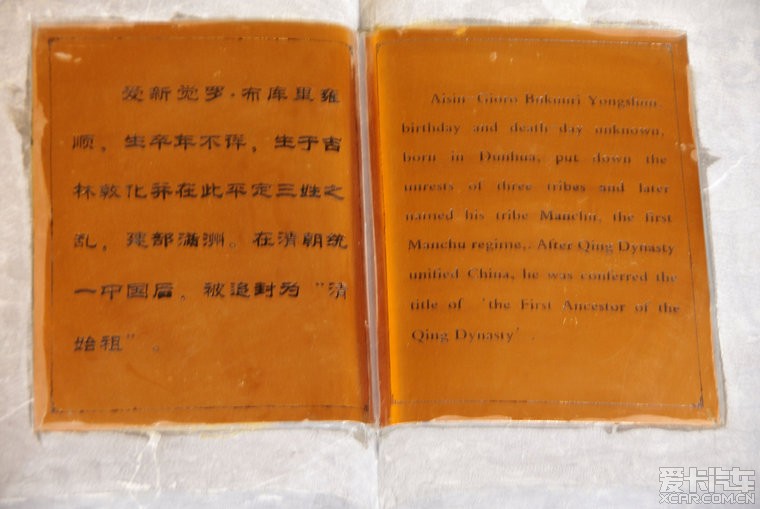 爱新觉罗·布库里雍
顺，生卒年不详，生于吉
林敦化并在此平定三姓之
乱，建部满洲。在清朝统
一中国后，被追封为“清
始祖”。
Aisin Gioro Bukuuri Yongshun,
birthday and death day unknown,
born in Dunhua, put down the
unrests of three tribes and later
named his tribe Manchu, the first
Manchu regime,. After Qing Dynasty
unified China, he was conferred the
title of ‘the First Ancestor of the
Qing Dynasty’.
爱卡汽车
XCAR.COM.CN